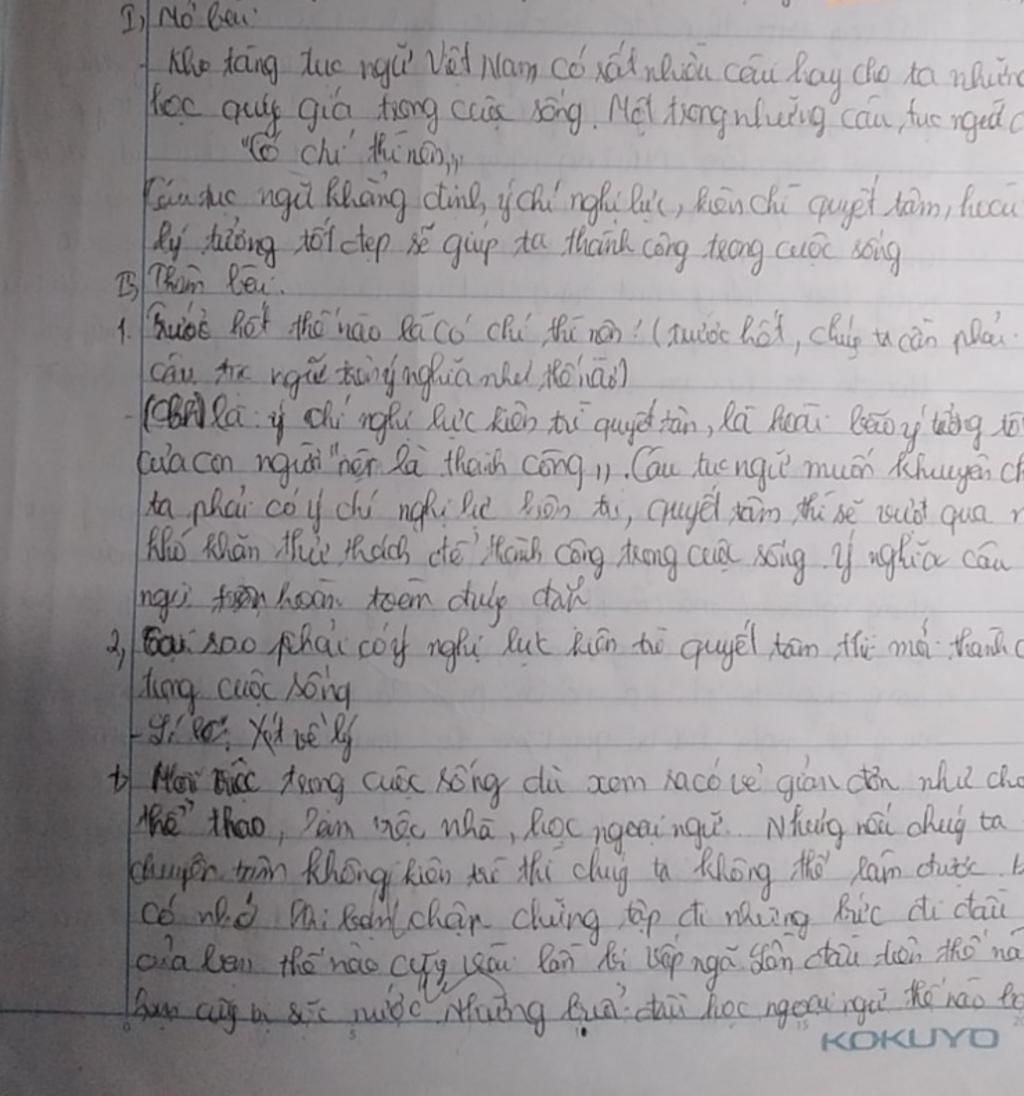 I, Mở bài:
- Kho tàng tục ngữ Việt Nam có rất nhiều câu hay cho ta những
học quý giá trong cuộc sống. Một trong những câu, tục ngữ
"Có chí thì nên,,
Câu tục ngữ khẳng định, ý chí nghị lực, kiên chì quyết tâm, hoài
lý tưởng tốt đẹp sẽ giúp ta thành công trong cuộc sống
B, Thân bài.
1. Trước hết thế nào là có chí thì nên! (trước hết, chúng ta cần phải
câu tục ngữ trùng nghĩa như thế nào)
- là ý chí nghị lực kiên trì quyết tân, là hoài bão ý tưởng tố
của con người "nên là thành công,,. Câu tục ngữ muốn khuyên ch
ta phải có ý chí nghị lực kiên trì, quyết tâm thì sẽ vượt qua
khó khăn thức thách để thành công trong cuộc sống. ý nghĩa câu
ngữ hoàn toàn đúng đắn
2, Tại sao phải có ý nghị lực kiên trì quyết tâm thì mới thành c
trong cuộc sống
- Xét về lý
Mọi việc trong cuộc sống dù xem ra có vẻ giản đơn như chơ
thể thao, làm việc nhà, học ngoại ngữ. Nhưng nếu chúng ta
chuyên không kiên trì thì chúng ta không thể làm được.
có nhớ chập chững tập đi những bước đi đầu
của bạn thế nào cũng vấp ngã. Lần đầu tiên thế nà
bạn cũng bị sặc nước. Những buổi đầu học ngoại ngữ thế nào
KOKUYO